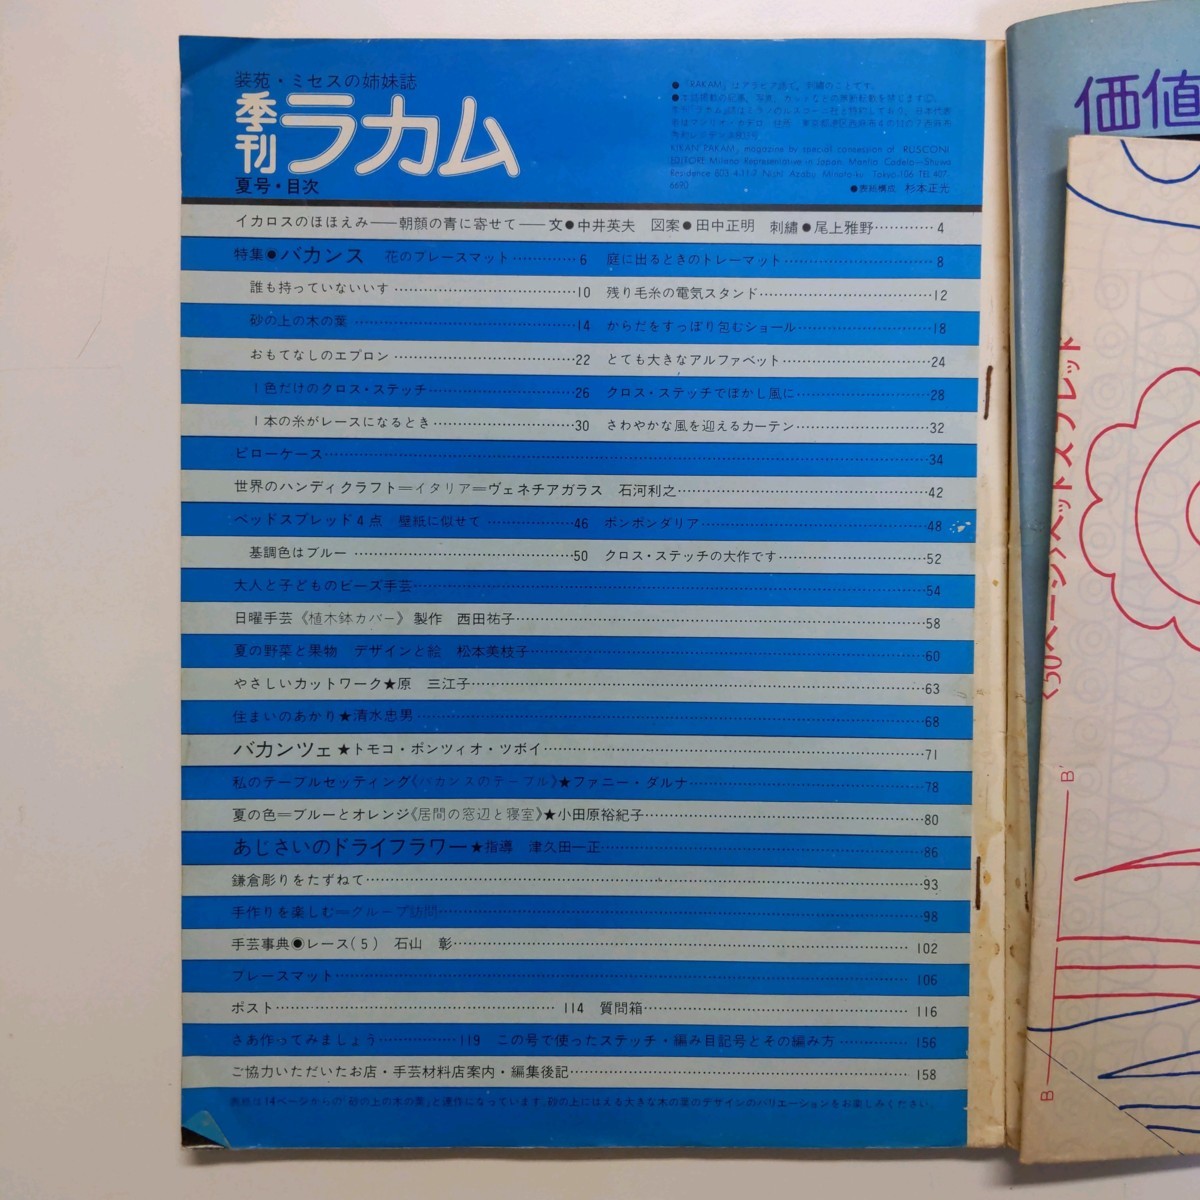 装苑・ミセスの姉妹誌
季刊ラカム
夏号・目次
●「RAKAM」はアラビア語で、刺繍のことです。
KIKAN RAKAM, magazine by special concession of RUSCONI
EDITORE Milano Representative in Japan,
Residence 603 4-11-7 Nishi Azabu Minato-ku Tokyo-106 TEL 407-
6690
●表紙構成 杉本正光
イカロスのほほえみ——朝顔の青に寄せて——文●中井英夫 図案●田中正明 刺繡●尾上雅野…………4
特集●バカンス 花のプレースマット…………6 庭に出るときのトレーマット…………8
誰も持っていないいす…………10 残り毛糸の電気スタンド…………12
砂の上の木の葉…………14 からだをすっぽり包むショール…………18
おもてなしのエプロン…………22 とても大きなアルファベット…………24
1色だけのクロス・ステッチ…………26 クロス・ステッチでぼかし風に…………28
1本の糸がレースになるとき…………30 さわやかな風を迎えるカーテン…………32
ピローケース…………34
世界のハンディクラフト=イタリア=ヴェネチアガラス 石河利之…………42
ベッドスプレッド4点 壁紙に似せて…………46 ポンポンダリア…………48
基調色はブルー…………50 クロス・ステッチの大作です…………52
大人と子どものビーズ手芸…………54
日曜手芸《植木鉢カバー》製作 西田祐子…………58
夏の野菜と果物 デザインと絵 松本美枝子…………60
やさしいカットワーク★原 三江子…………63
住まいのあかり★清水忠男…………68
バカンツェ★トモコ・ポンツィオ・ツボイ…………71
私のテーブルセッティング《バカンスのテーブル》★ファニー・ダルナ…………78
夏の色=ブルーとオレンジ《居間の窓辺と寝室》★小田原裕紀子…………80
あじさいのドライフラワー★指導 津久田一正…………86
鎌倉彫りをたずねて…………93
手作りを楽しむ=グループ訪問…………98
手芸事典●レース(5) 石山 彰…………102
プレースマット…………106
ポスト…………114 質問箱…………116
さあ作ってみましょう…………119 この号で使ったステッチ・編み目記号とその編み方…………156
ご協力いただいたお店・手芸材料店案内・編集後記…………158
表紙は14ページからの"砂の上の木の葉"と連作になっています。砂の上にはえる大きな木の葉のデザインのバリエーションをお楽しみください。
価値
〈50ページ〉ベッドスプレッド
B
B